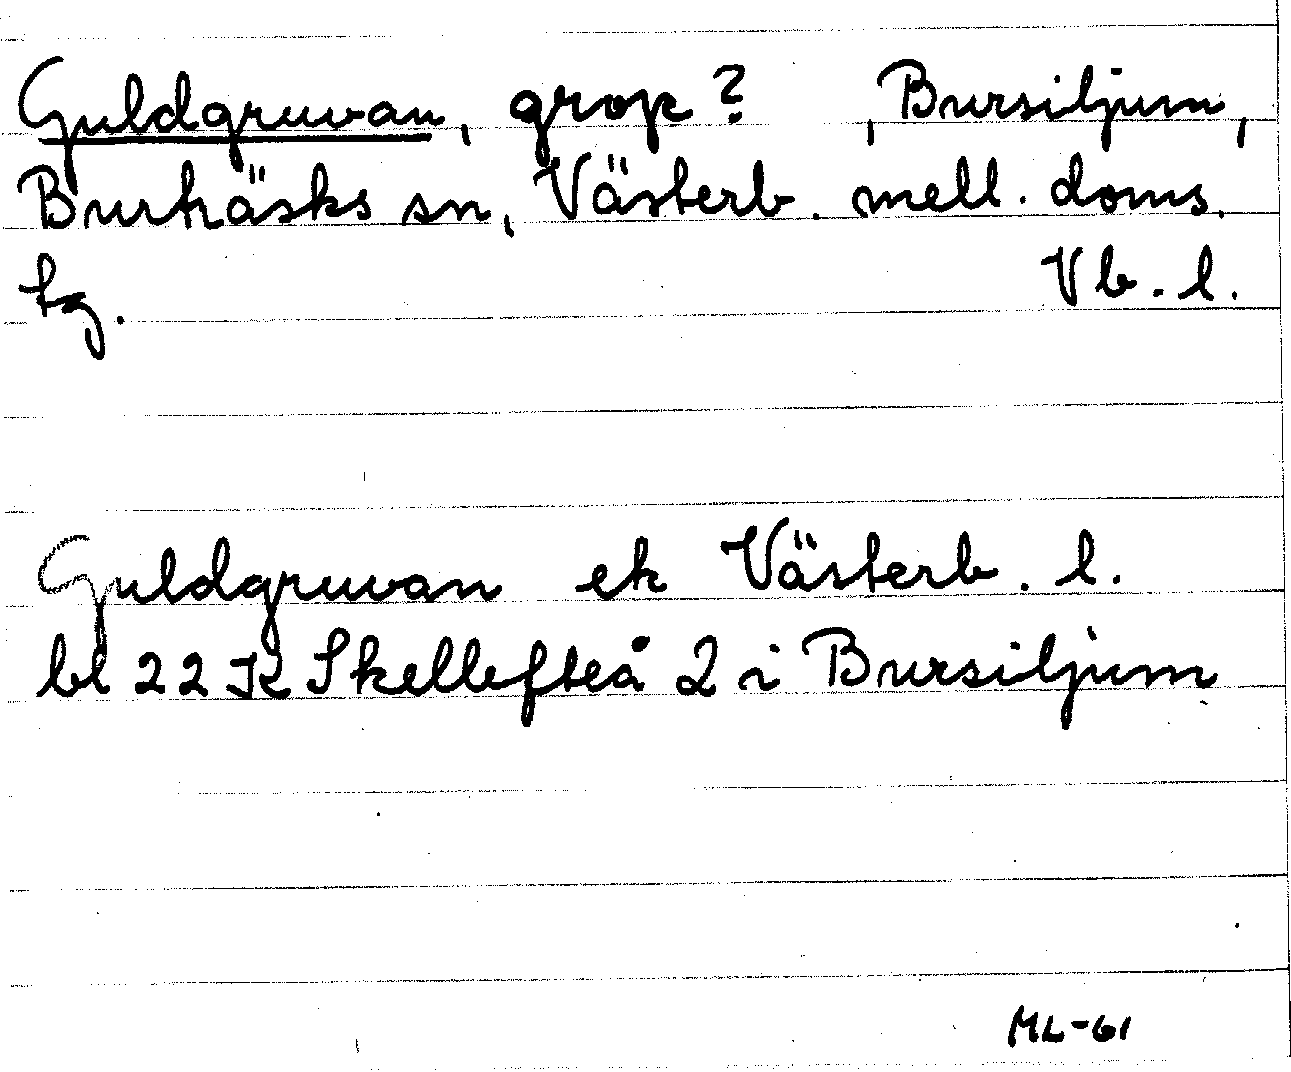 Guldgruvan, grop? , Bursiljum,
Burträsks sn, Västerb. mell. doms.
tg. Vb. l.
Guldgruvan ek Västerb. l.
bl 22 K Skellefteå 2 i Bursiljum
ML-61